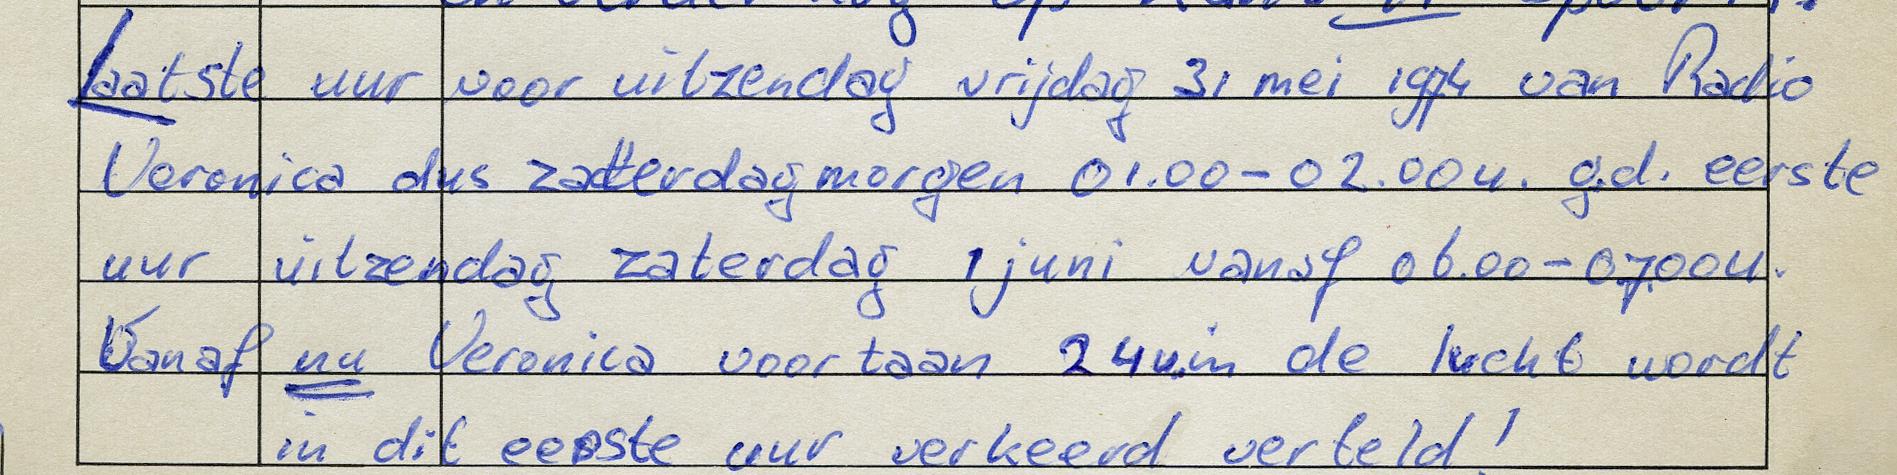 op
Laatste uur voor uitzendag vrijdag 31 mei 1974 van Radio
Veronica dus zatterdagmorgen 01.00-02.00u. g.d. eerste
uur uitzendag zaterdag 1 juni vanaf 06.00-07.00u.
Vanaf nu Veronica voortaan 24u.in de lucht wordt
in dit eerste uur verkeerd verteld!